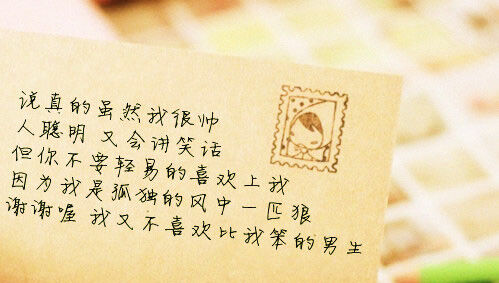 说真的虽然我很帅
人聪明 又会讲笑话
但你不要轻易的喜欢上我
因为我是孤独的风中一匹狼
谢谢喔 我又不喜欢比我笨的男生